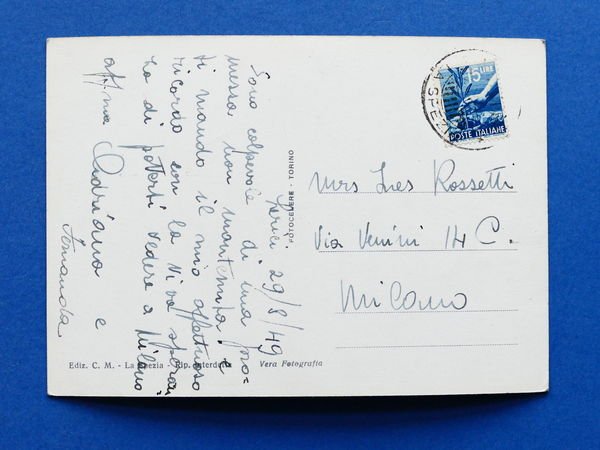 Lerici 29/8/49
Sono colpevole di una pro-
messa non mantenuta e
ti mando il mio affettuoso
ricordo con la viva speran
za di poterti vedere a Milano
aff.ma Adriana e
Fernanda
FOTOCELERE - TORINO
15 LIRE
POSTE ITALIANE
LA SPEZIA
Mrs Ines Rossetti
Via Venini 14 C.
Milano
Ediz. C. M. - La Spezia - Rip. interdetta
Vera Fotografia